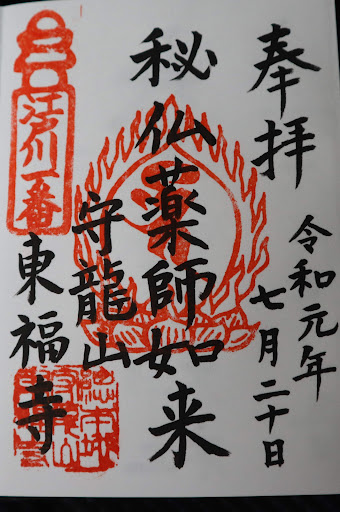 奉拝
令和元年
七月二十日
秘仏薬師如来
守龍山
東福寺
江戸川一番